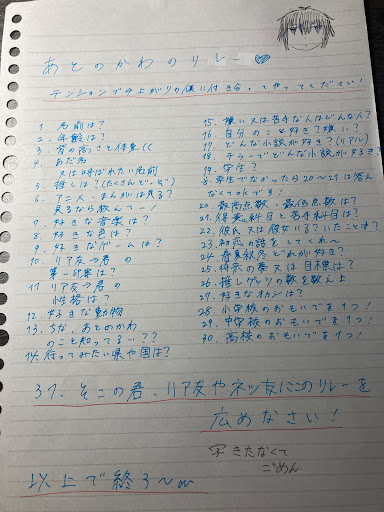 あとのかわのリレー
テンションブチ上がりの僕に付き合ってやってください!
1. 名前は?
2. 年齢は?
3. 背の高さと体重((
4. あだ名
又は呼ばれたい名前
5. 推しは?(たくさんど〜ぞ)
6. アニメ・まんがは見る?
見るなら教えて
7. 好きな音楽は?
8. 好きな色は?
9. 好きなゲームは?
10. リア友→君の
第一印象は?
11. リア友→君の
性格は?
12. 好きな動物
13. ちな、あとのかわ
のこと知ってる…??
14. 行ってみたい県や国は?
15. 嫌い又は苦手な人はどんな人?
16. 自分のこと好き?嫌い?
17. どんな小説が好き?(リアル)
18. テラーでどんな小説が好き?
19. 学生?
学生でなかったら20〜21は答え
なくてOKです!
20. 最高点数・最低点数は?
21. 得意科目と苦手科目は?
22. 彼氏又は彼女いる?いたことは?
23. 初恋の話をしてくれ〜
24. 春夏秋冬どれが好き?
25. 将来の夢又は目標は?
26. 推しグッツの数を教えよ
27. 好きなオカシは?
28. 小学校のおもいでを1つ!
29. 中学校のおもいでを1つ!
30. 高校のおもいでを1つ!
31. そこの君、リア友やネッ友にこのリレーを
広めなさい!
字きたなくて
ごめん
以上で終る〜